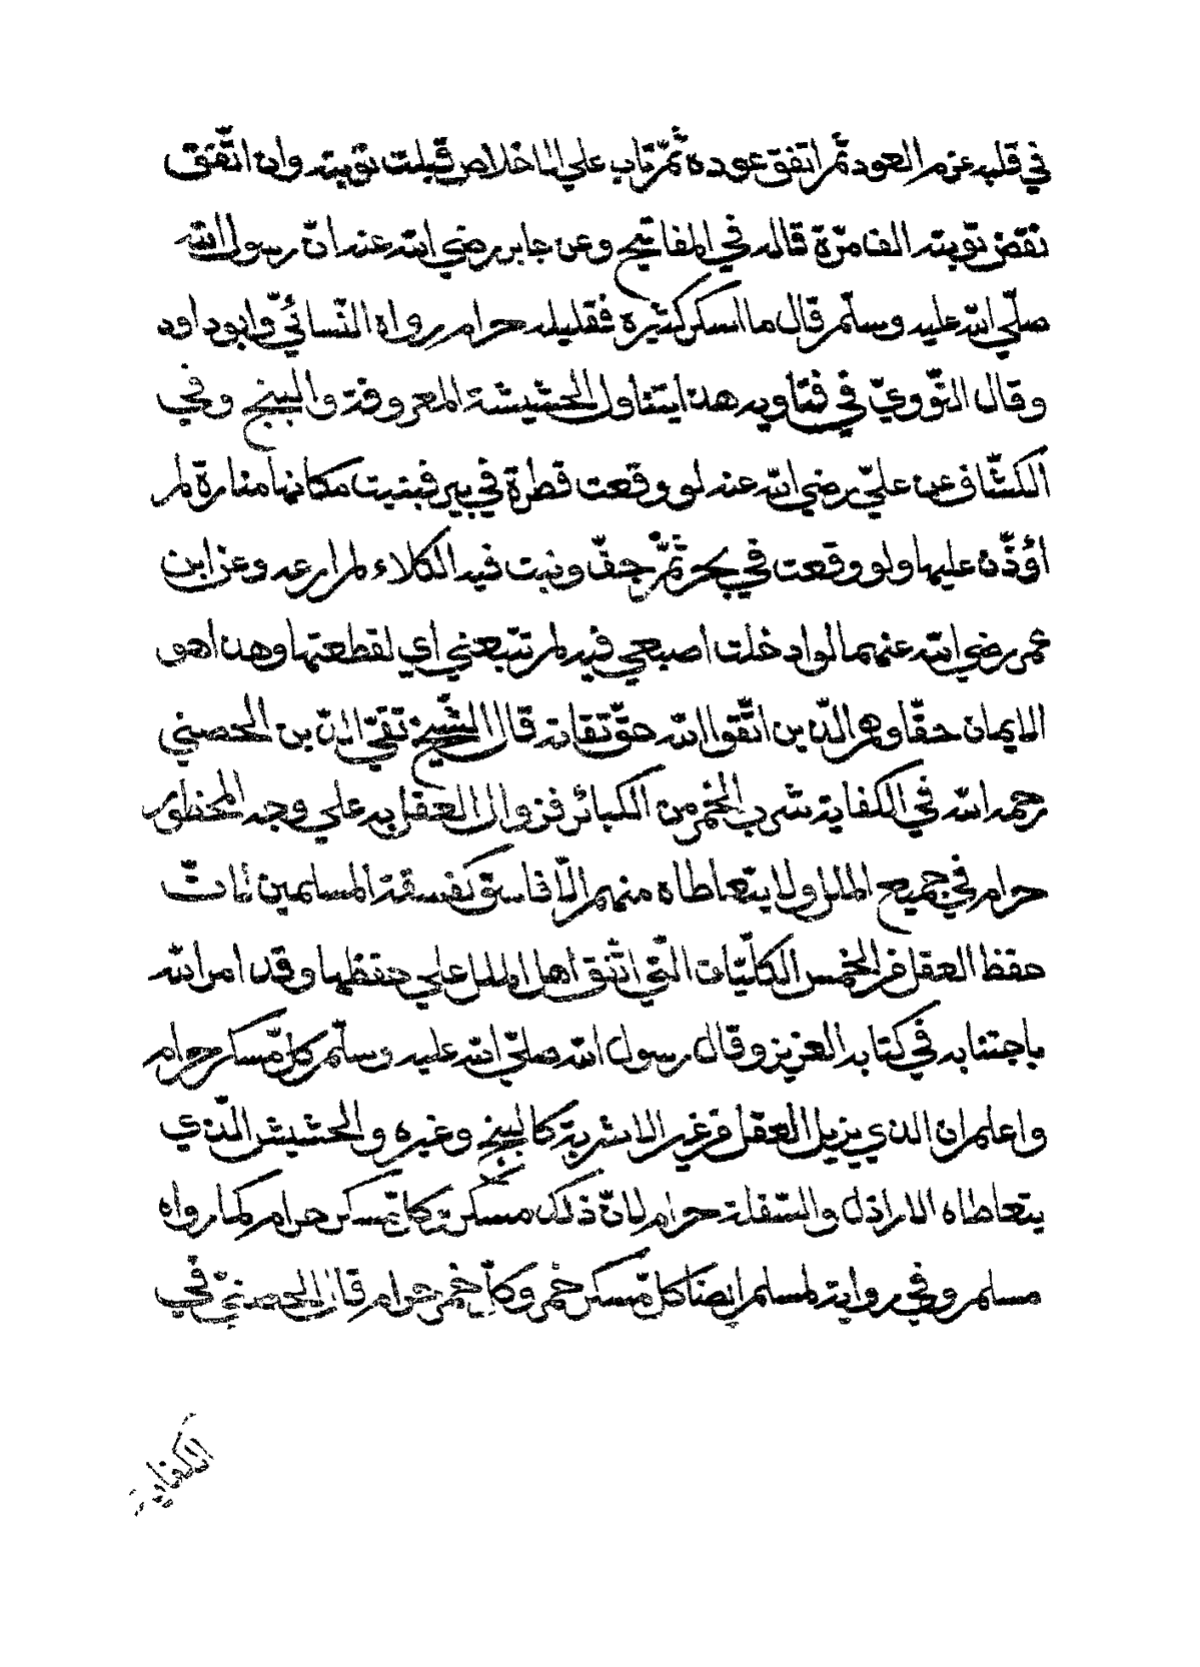 في قلبه عزم العود ثمّ اتفق عوده ثمّ تاب علي الاخلاص قبلت توبته وان اتّفق
نقض توبته الف مرّة قاله في المفاتيح وعن جابر رضي الله عنه انّ رسول الله
صلّي الله عليه وسلّم قال ما اسكر كثيره فقليله حرام رواه النّسائيّ وابوداود
وقال النّوويّ في فتاويه هذا يتناول الحشيشة المعروفة والبنج وفي
الكشّاف عن عليّ رضي الله عنه لو وقعت قطرة في بير فبنيت مكانها منارة لم
أؤذّن عليها ولو وقعت في بحر ثمّ جفّ ونبت فيه الكلاء لم ارعه وعن ابن
عمر رضي الله عنهما لو ادخلت اصبعي فيه لم تتبعني اي لقطعتها وهذا هو
الايمان حقّا وهم الّذين اتّقوا الله حقّ تقاته قال الشّيخ تقيّ الدّين بن الحصني
رحمه الله في الكفاية شرب الخمر من الكبائر فزوال العقل به علي وجه المحظور
حرام في جميع الملل ولا يتعاطاه منهم الّا فاسق كفسقة المسلمين لانّ
حفظ العقل من الخمس الكلّيّات الّتي اتّفق اهل الملل علي حفظها وقد امر الله
باجتنابه في كتابه العزيز وقال رسول الله صلّي الله عليه وسلّم كلّ مّسكر حرام
واعلم ان الذي يزيل العقل من غير الاشربة كالبنج وغيره والحشيش الّذي
يتعاطاه الاراذل والسّفلة حرام لانّ ذلك مسكر وكلّ مّسكر حرام كما رواه
مسلم وفي رواية لمسلم ايضا كلّ مّسكر خمر وكلّ خمر حرام قال الحصنيّ في
الكفاية